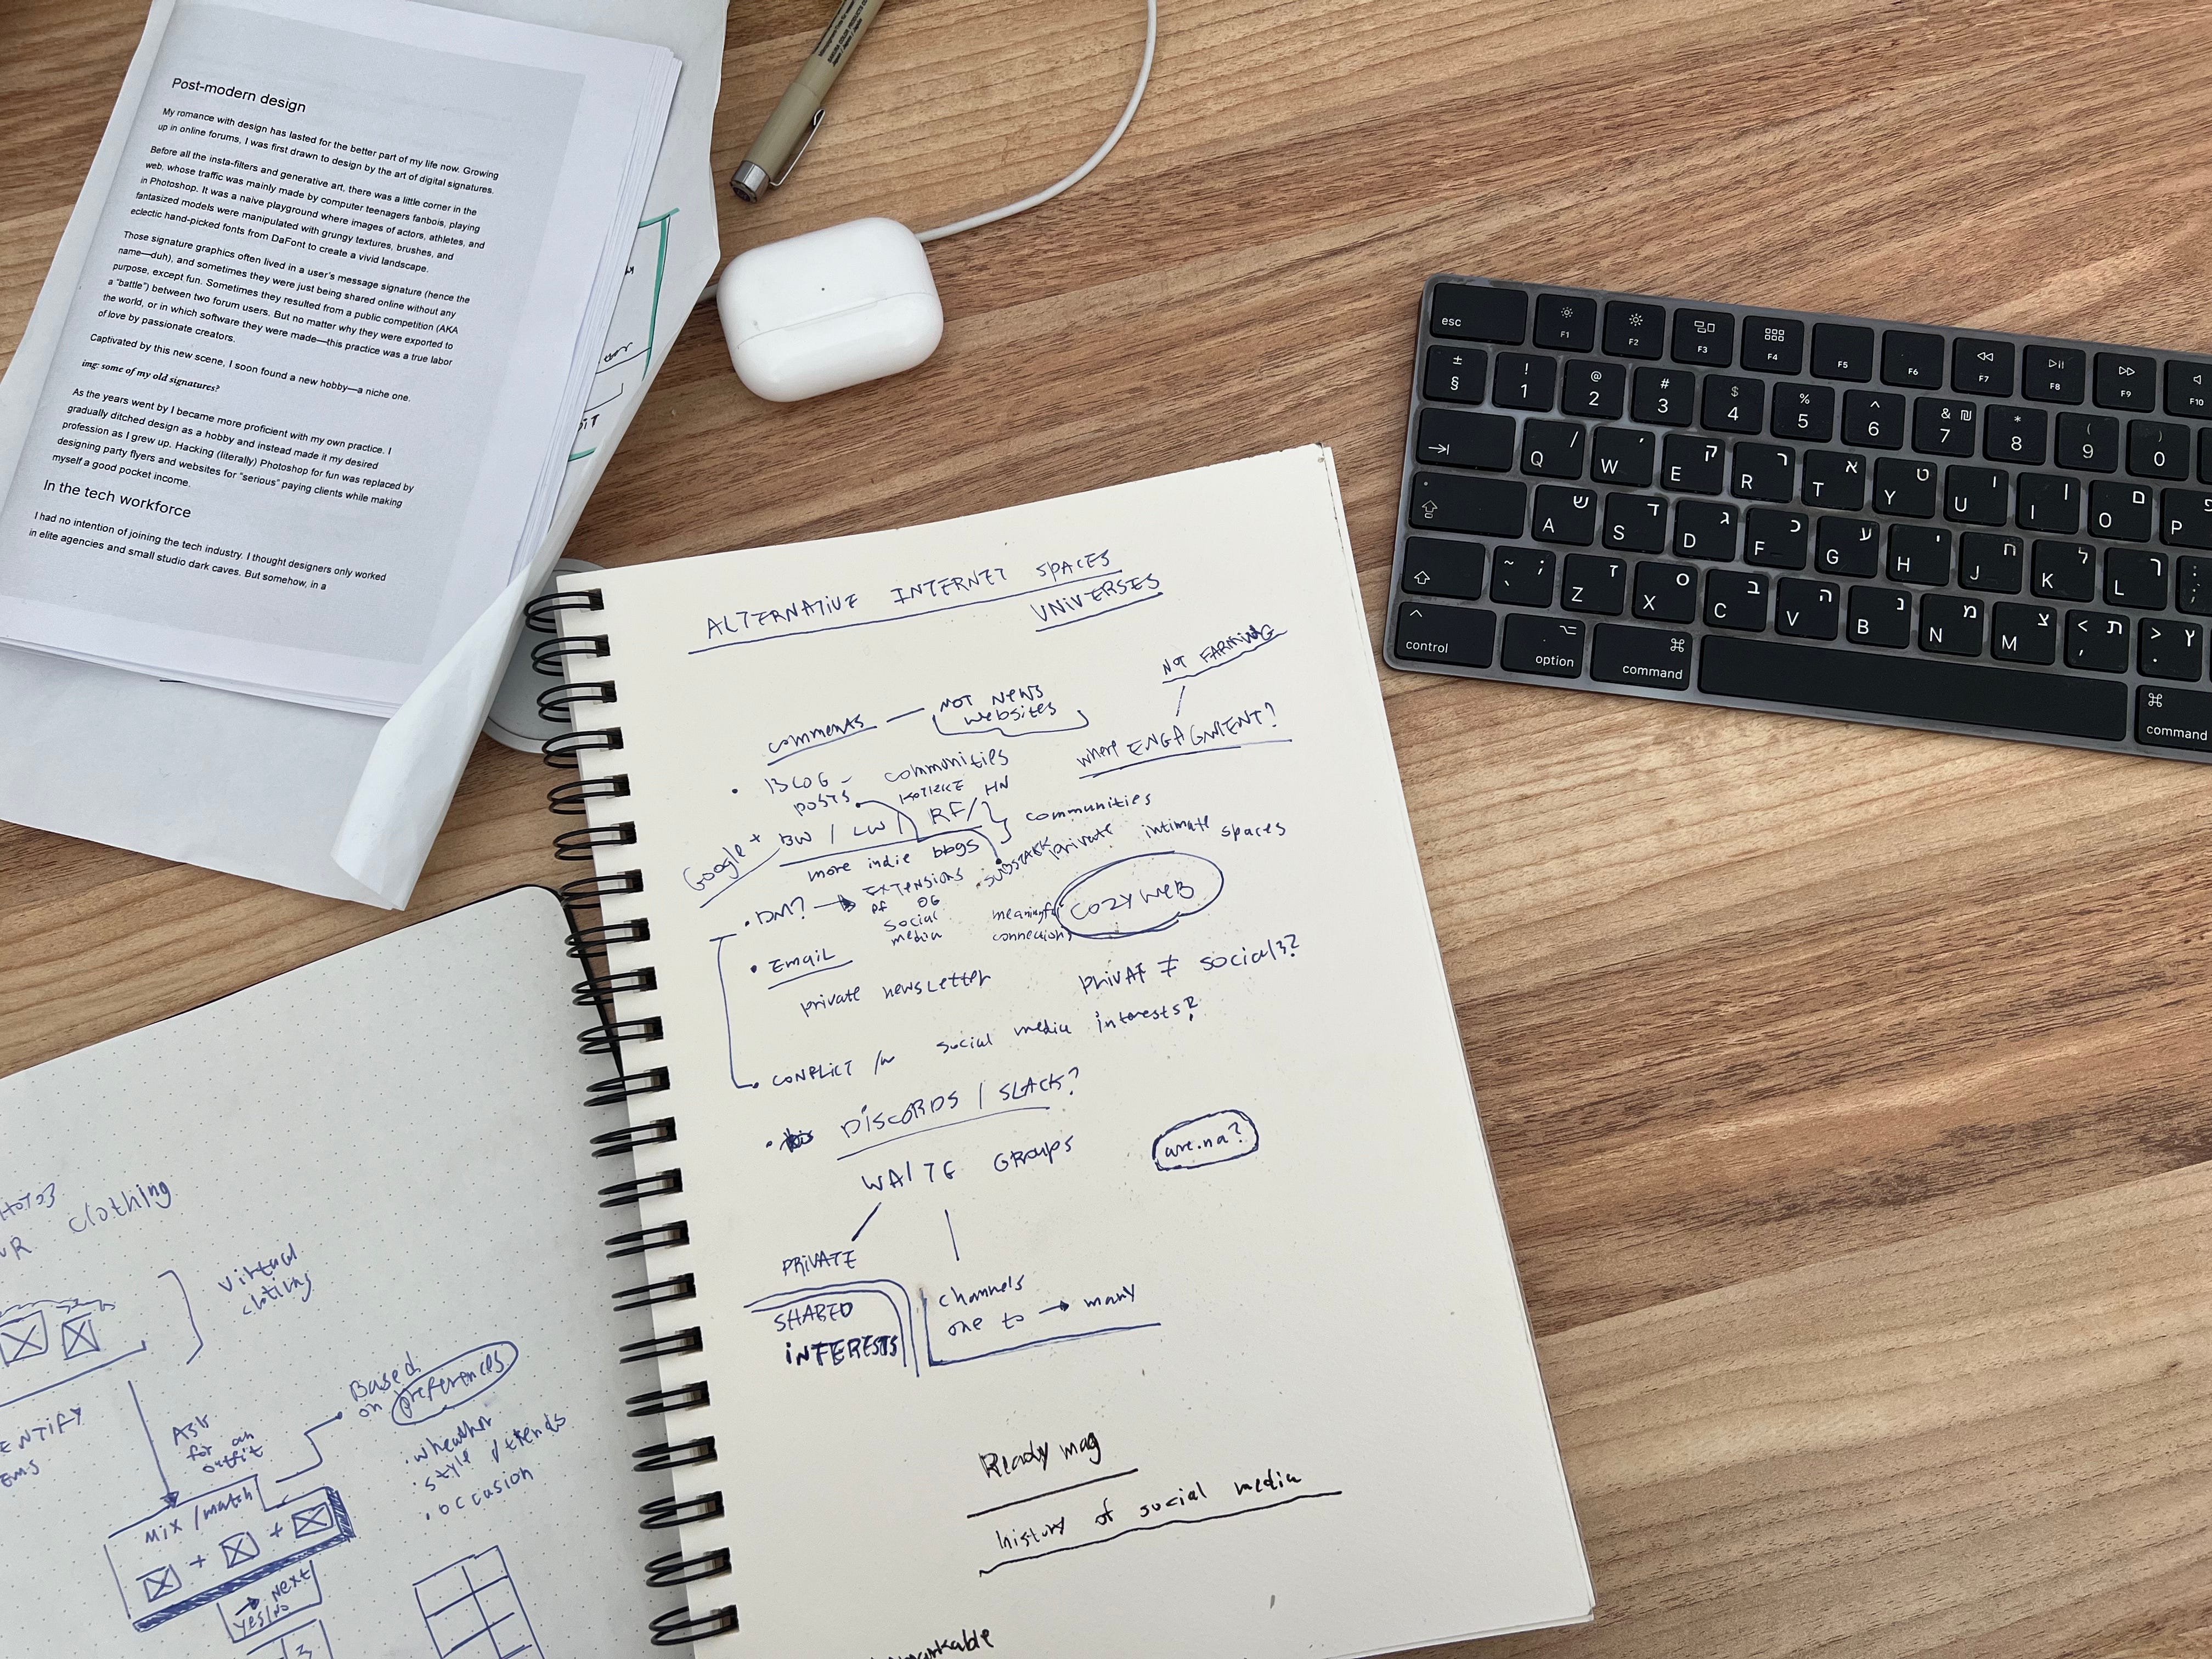 Post-modern design
My romance with design has lasted for the better part of my life now. Growing
up in online forums, I was first drawn to design by the art of digital signatures.
Before all the insta-filters and generative art, there was a little corner in the
web, whose traffic was mainly made by computer teenagers fanbois, playing
in Photoshop. It was a naive playground where images of actors, athletes, and
fantasized models were manipulated with grungy textures, brushes, and
eclectic hand-picked fonts from DaFont to create a vivid landscape.
Those signature graphics often lived in a user's message signature (hence the
name—duh), and sometimes they were just being shared online without any
purpose, except fun. Sometimes they resulted from a public competition (AKA
a "battle") between two forum users. But no matter why they were exported to
the world, or in which software they were made—this practice was a true labor
of love by passionate creators.
Captivated by this new scene, I soon found a new hobby—a niche one.
img: some of my old signatures?
As the years went by I became more proficient with my own practice. I
gradually ditched design as a hobby and instead made it my desired
profession as I grew up. Hacking (literally) Photoshop for fun was replaced by
designing party flyers and websites for "serious" paying clients while making
myself a good pocket income.
In the tech workforce
I had no intention of joining the tech industry. I thought designers only worked
in elite agencies and small studio dark caves. But somehow, in a
ALTERNATIVE INTERNET SPACES
UNIVERSES
NOT FARMING
comments — NOT NEWS
websites
where ENGAGMENT?
• BLOG – communities
posts
KOTTKE HN
Google + BW / LW / RF / communities
more indie blogs
SUBSTACK private intimate spaces
• DM? → EXTENSIONS
OF OG
social
media
meaningful
connections
COZY WEB
• EMAIL
private newsletter
privat ≠ social??
• CONFLICT /w social media interests?
• DISCORDS / SLACK?
WA / TG GROUPS
are.na?
PRIVATE
SHARED
INTERESTS
channels
one to → many
Ready mag
history of social media
clothing
virtual
clothing
Ask
for an
outfit
Based
on preferences
• wheather
• style / trends
• occusion
Mix / match
+ +
→ Next
yes/no
esc F1 F2 F3 F4 F5 F6 F7 F8 F9 F10
± § ! 1 @ 2 # 3 $ 4 % 5 ^ 6 & ₪ 7 * 8 ( 9 ) 0
Q / W ' E ק R ר T א Y ט U ו I ן O ם P פ
A ש S ד D ג F כ G ע H י J ח K ל L ך : ;
~ ` ; Z ז X ס C ב V ה B נ N מ M צ < , ת > . ץ
control option command command